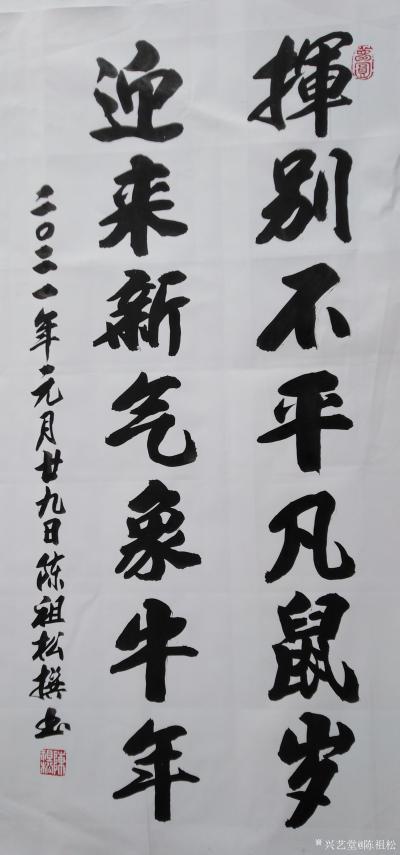 揮别不平凡鼠岁
迎来新气象牛年
二〇二一年元月廿九日陈祖松撰书
兴艺堂@陈祖松